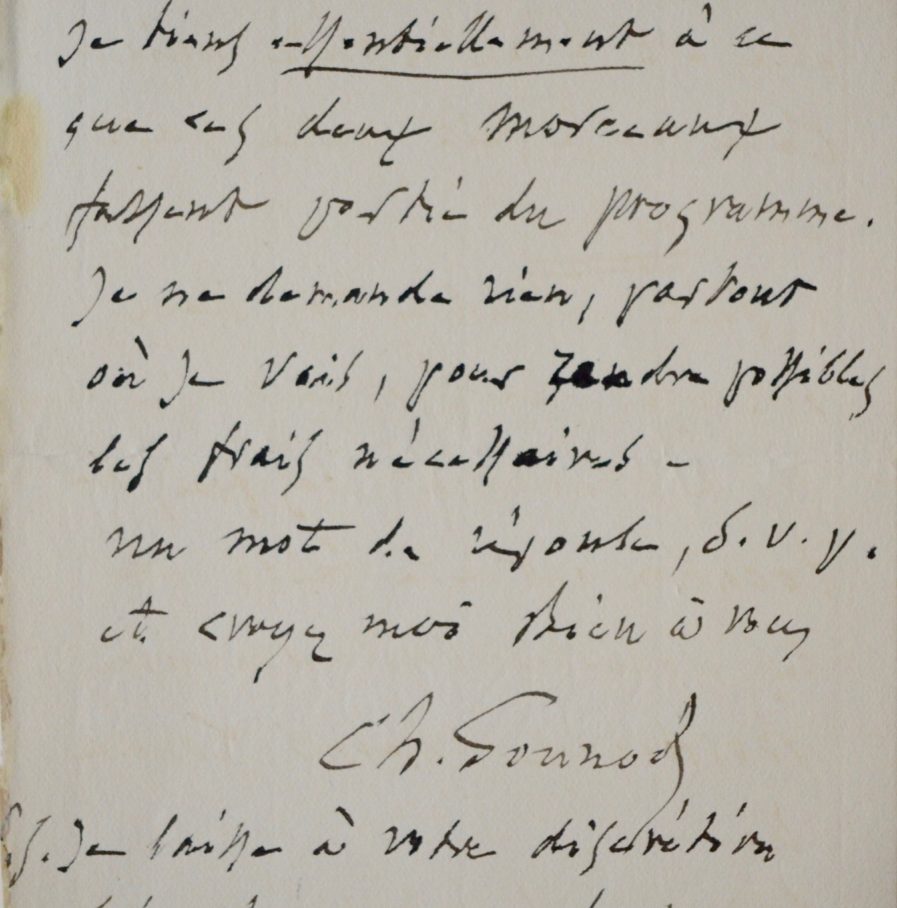 Je tiens essentiellement à ce
que ces deux morceaux
fassent partie du programme.
Je ne demande rien, partout
où je vais, pour rendre possibles
les frais nécessaires -
un mot de réponse, s. v. p.
et croyez moi bien à vous
Ch. Gounod
P.S. Je laisse à votre discrétion